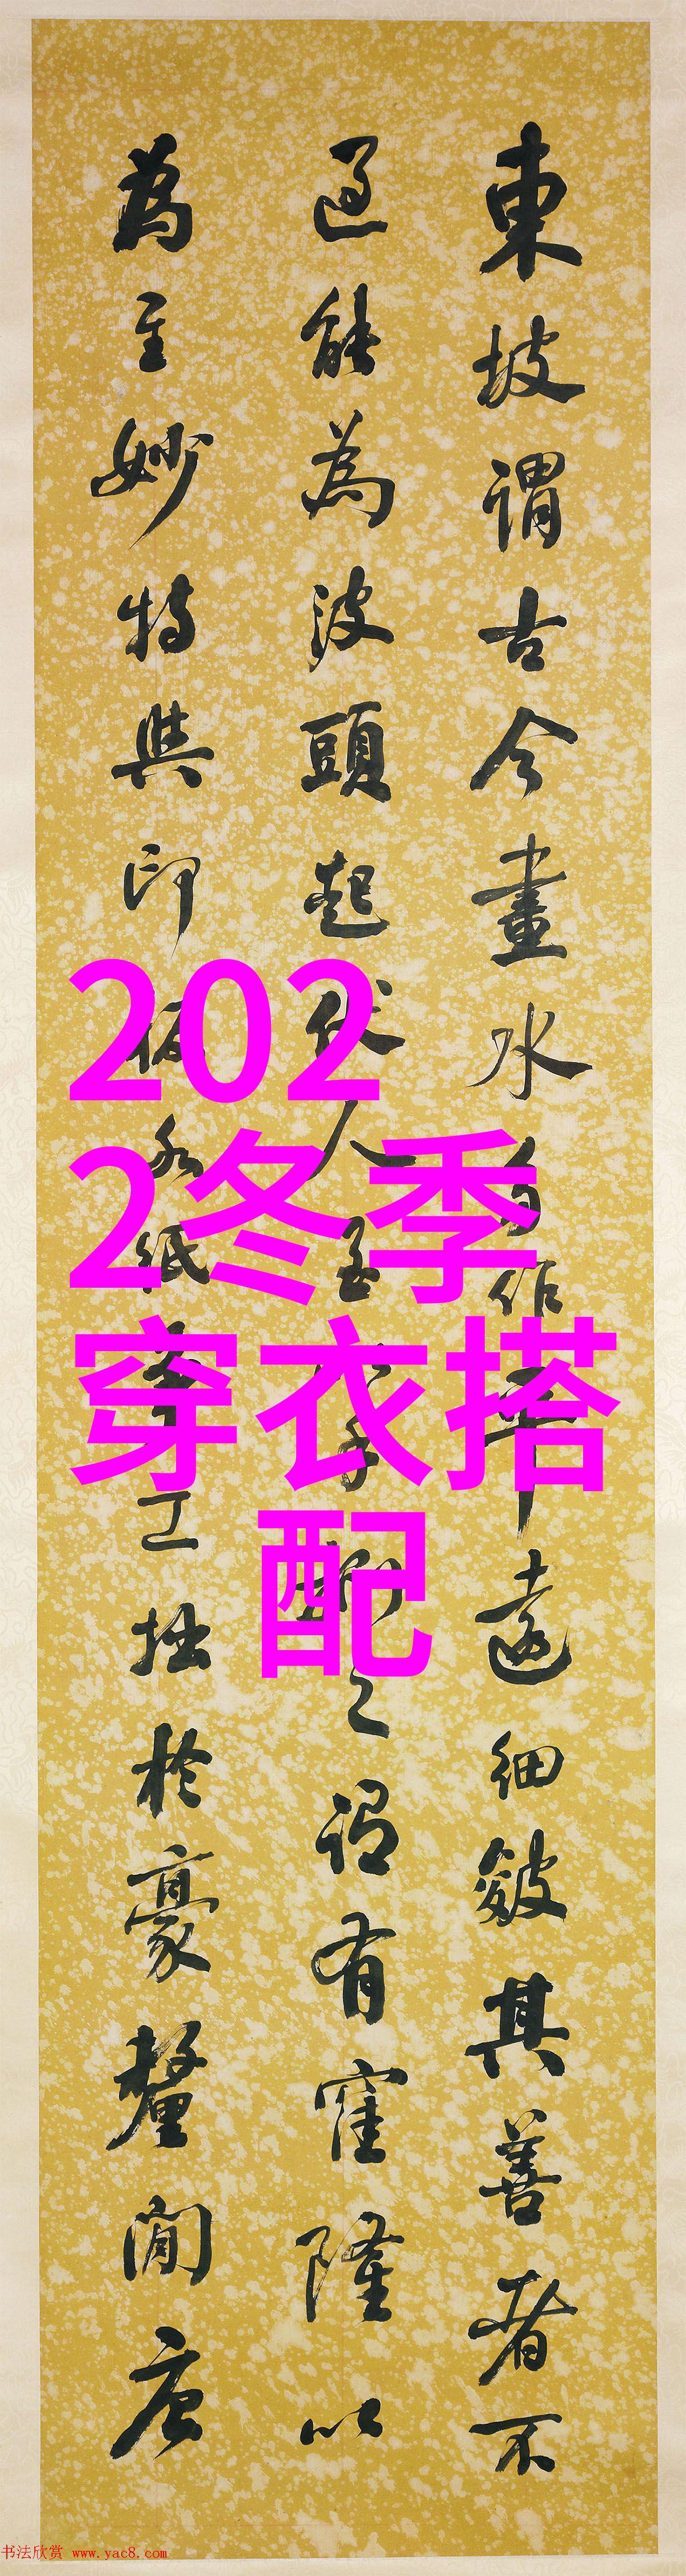 東坡謂古今畫水多作平遠細皴其善者不
過能為波頭起伏使人至以手捫之謂有窪隆以
為至妙特與印板水紙爭工拙於豪釐間唐
202
2冬季
穿衣搭
配
书法欣赏 www.yac8.com